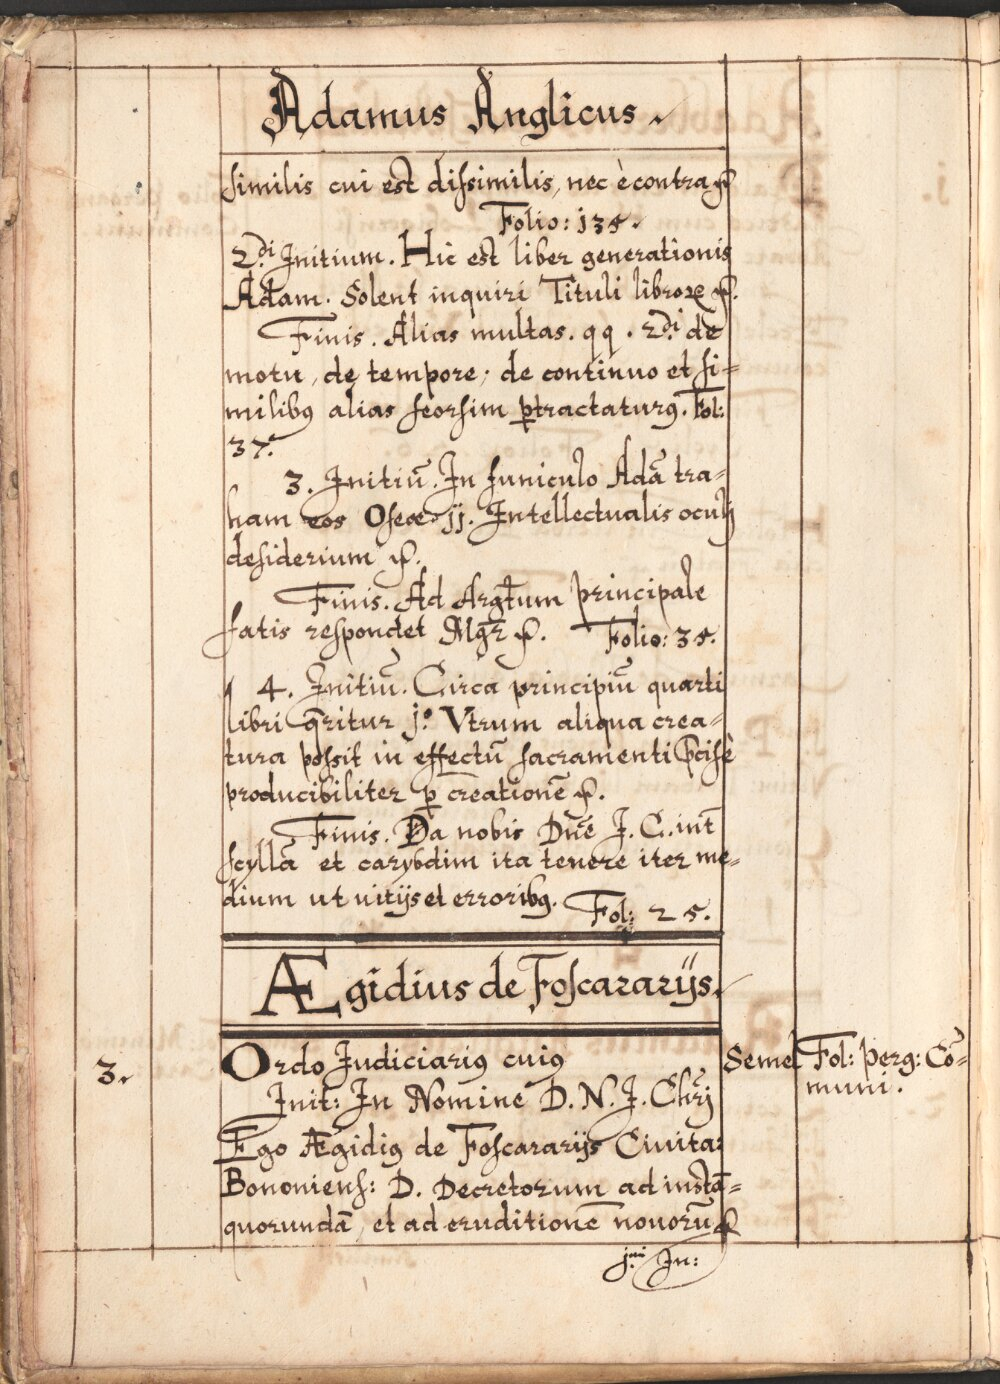 Adamus Anglicus.
similis cui est dissimilis, nec è contra &c
Folio: 135.
2.di Initium. Hic est liber generationis
Adam. Solent inquiri Tituli libroꝝ &c.
Finis. Alias multas. qq. 2.di de
motu, de tempore; de continuo et si=
milibꝰ alias seorsim ꝑtractaturꝰ. Fol:
37.
3. Initiū. In funiculo Adā tra=
ham eos Oseæ jj. Intellectualis oculj
desiderium &c.
Finis. Ad Argt̄um principale
satis respondet Mgr̄ &c. Folio: 35.
4. Initiū. Circa principiū quarti
libri q̄ritur j.o Vtrum aliqua crea=
tura possit in effectū sacramenti p̄cisè
producibiliter ꝑ creationē &c.
Finis. Da nobis Dn̄e J. C. int̄
scyllā et carybdim ita tenere iter me=
dium ut uitijs et erroribꝰ. Fol: 25.
Ægidius de Foscararijs.
3. Ordo Judiciariꝰ cuiꝰ Semel Fol: perg: Cō=
muni.
Init: In Nomine D. N. J. Chr̄j
Ego Ægidiꝰ de Foscararijs Ciuita:
Bononiens: D. Decretorum ad instā=
quorundā, et ad eruditionē nouorū &c
j.mi In: